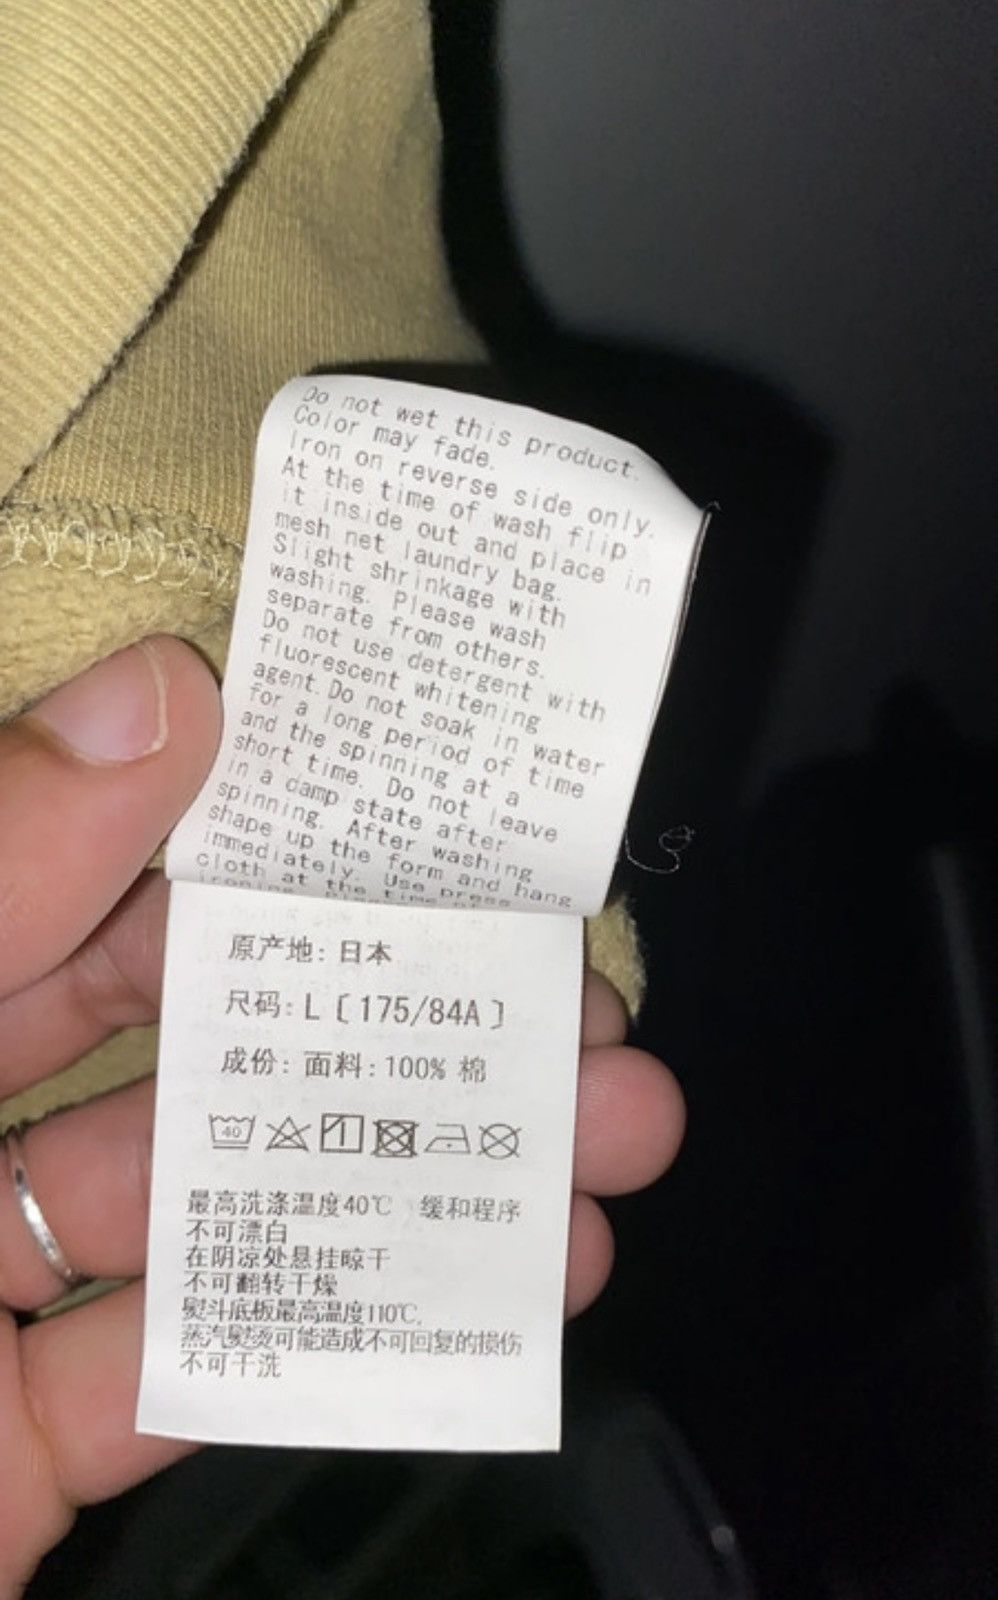 Do not wet this product.
Color may fade.
Iron on reverse side only.
At the time of wash flip
it inside out and place in
mesh net laundry bag.
Slight shrinkage with
washing. Please wash
separate from others.
Do not use detergent with
fluorescent whitening
agent.Do not soak in water
for a long period of time
and the spinning at a
short time. Do not leave
in a damp state after
spinning. After washing
shape up the form and hang
immediately. Use press
cloth at the time of
原产地: 日本
尺码: L〔175/84A〕
成份: 面料: 100% 棉
40
最高洗涤温度40℃ 缓和程序
不可漂白
在阴凉处悬挂晾干
不可翻转干燥
熨斗底板最高温度110℃,
蒸汽熨烫可能造成不可回复的损伤
不可干洗